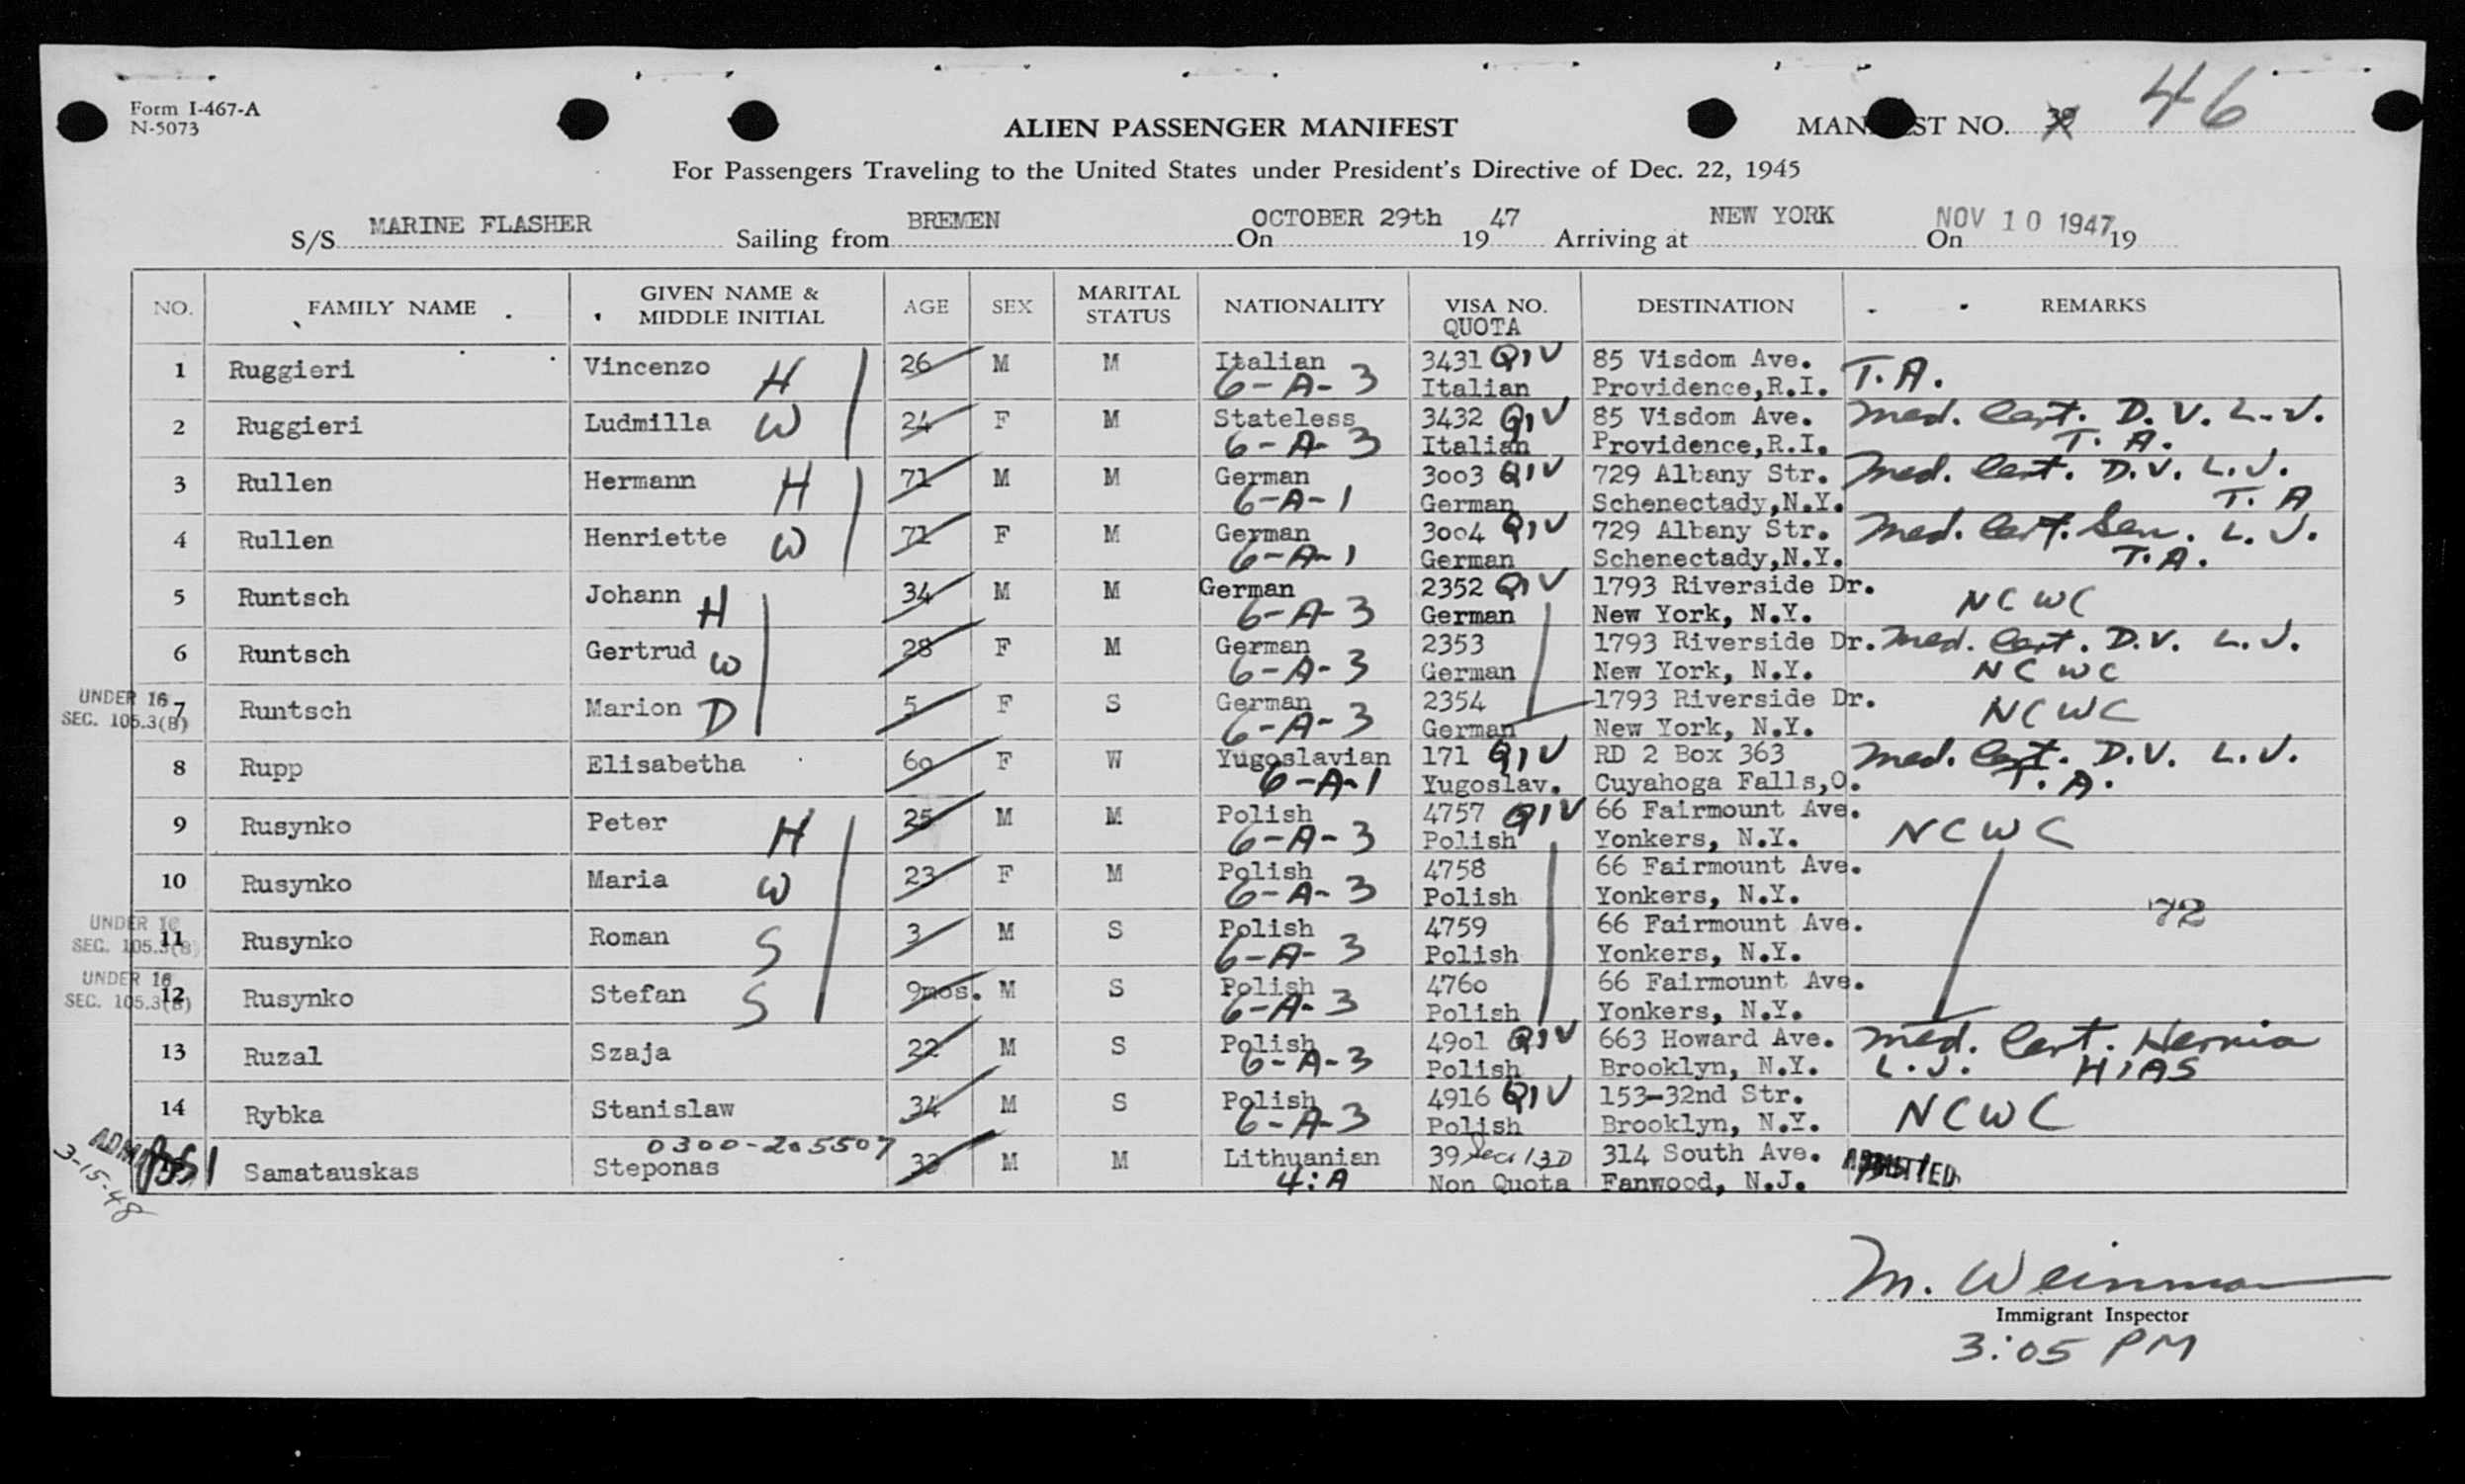 Form I-467-A
N-5073
46
ALIEN PASSENGER MANIFEST
MAN ST NO. 39
For Passengers Traveling to the United States under President's Directive of Dec. 22, 1945
S/S MARINE FLASHER Sailing from BREMEN On OCTOBER 29th 1947 Arriving at NEW YORK On NOV 10 1947 19
NO. FAMILY NAME GIVEN NAME & MIDDLE INITIAL AGE SEX MARITAL STATUS NATIONALITY VISA NO. QUOTA DESTINATION REMARKS
1 Ruggieri Vincenzo H 26 M M Italian 3431 QIV 85 Visdom Ave. T.A.
6-A-3 Italian Providence,R.I.
2 Ruggieri Ludmilla W 24 F M Stateless 3432 QIV 85 Visdom Ave. Med. Cert. D.V. L.J.
6-A-3 Italian Providence,R.I. T.A.
3 Rullen Hermann H 71 M M German 3003 QIV 729 Albany Str. Med. Cert. D.V. L.J.
6-A-1 German Schenectady,N.Y. T.A
4 Rullen Henriette W 71 F M German 3004 QIV 729 Albany Str. Med. Cert. Sen. L.J.
6-A-1 German Schenectady,N.Y. T.A.
5 Runtsch Johann H 34 M M German 2352 QIV 1793 Riverside Dr. NCWC
6-A-3 German New York, N.Y.
6 Runtsch Gertrud W 28 F M German 2353 1793 Riverside Dr. Med. Cert. D.V. L.J.
6-A-3 German New York, N.Y. NCWC
UNDER 16
SEC. 105.3(B)
7 Runtsch Marion D 5 F S German 2354 1793 Riverside Dr. NCWC
6-A-3 German New York, N.Y.
8 Rupp Elisabetha 60 F W Yugoslavian 171 QIV RD 2 Box 363 Med. Cert. D.V. L.J.
6-A-1 Yugoslav. Cuyahoga Falls,O. T.A.
9 Rusynko Peter H 25 M M Polish 4757 QIV 66 Fairmount Ave. NCWC
6-A-3 Polish Yonkers, N.Y.
10 Rusynko Maria W 23 F M Polish 4758 66 Fairmount Ave.
6-A-3 Polish Yonkers, N.Y. 72
UNDER 16
SEC. 105.3(B)
11 Rusynko Roman S 3 M S Polish 4759 66 Fairmount Ave.
6-A-3 Polish Yonkers, N.Y.
UNDER 16
SEC. 105.3(B)
12 Rusynko Stefan S 9mos. M S Polish 4760 66 Fairmount Ave.
6-A-3 Polish Yonkers, N.Y.
13 Ruzal Szaja 22 M S Polish 4901 QIV 663 Howard Ave. Med. Cert. Hernia
6-A-3 Polish Brooklyn, N.Y. L.J. HIAS
14 Rybka Stanislaw 34 M S Polish 4916 QIV 153-32nd Str. NCWC
6-A-3 Polish Brooklyn, N.Y.
0300-205507
3-15-48
Samatauskas Steponas 33 M M Lithuanian 39 314 South Ave. ADMITTED
4:A Non Quota Fanwood, N.J.
M. Weinman
Immigrant Inspector
3:05 PM